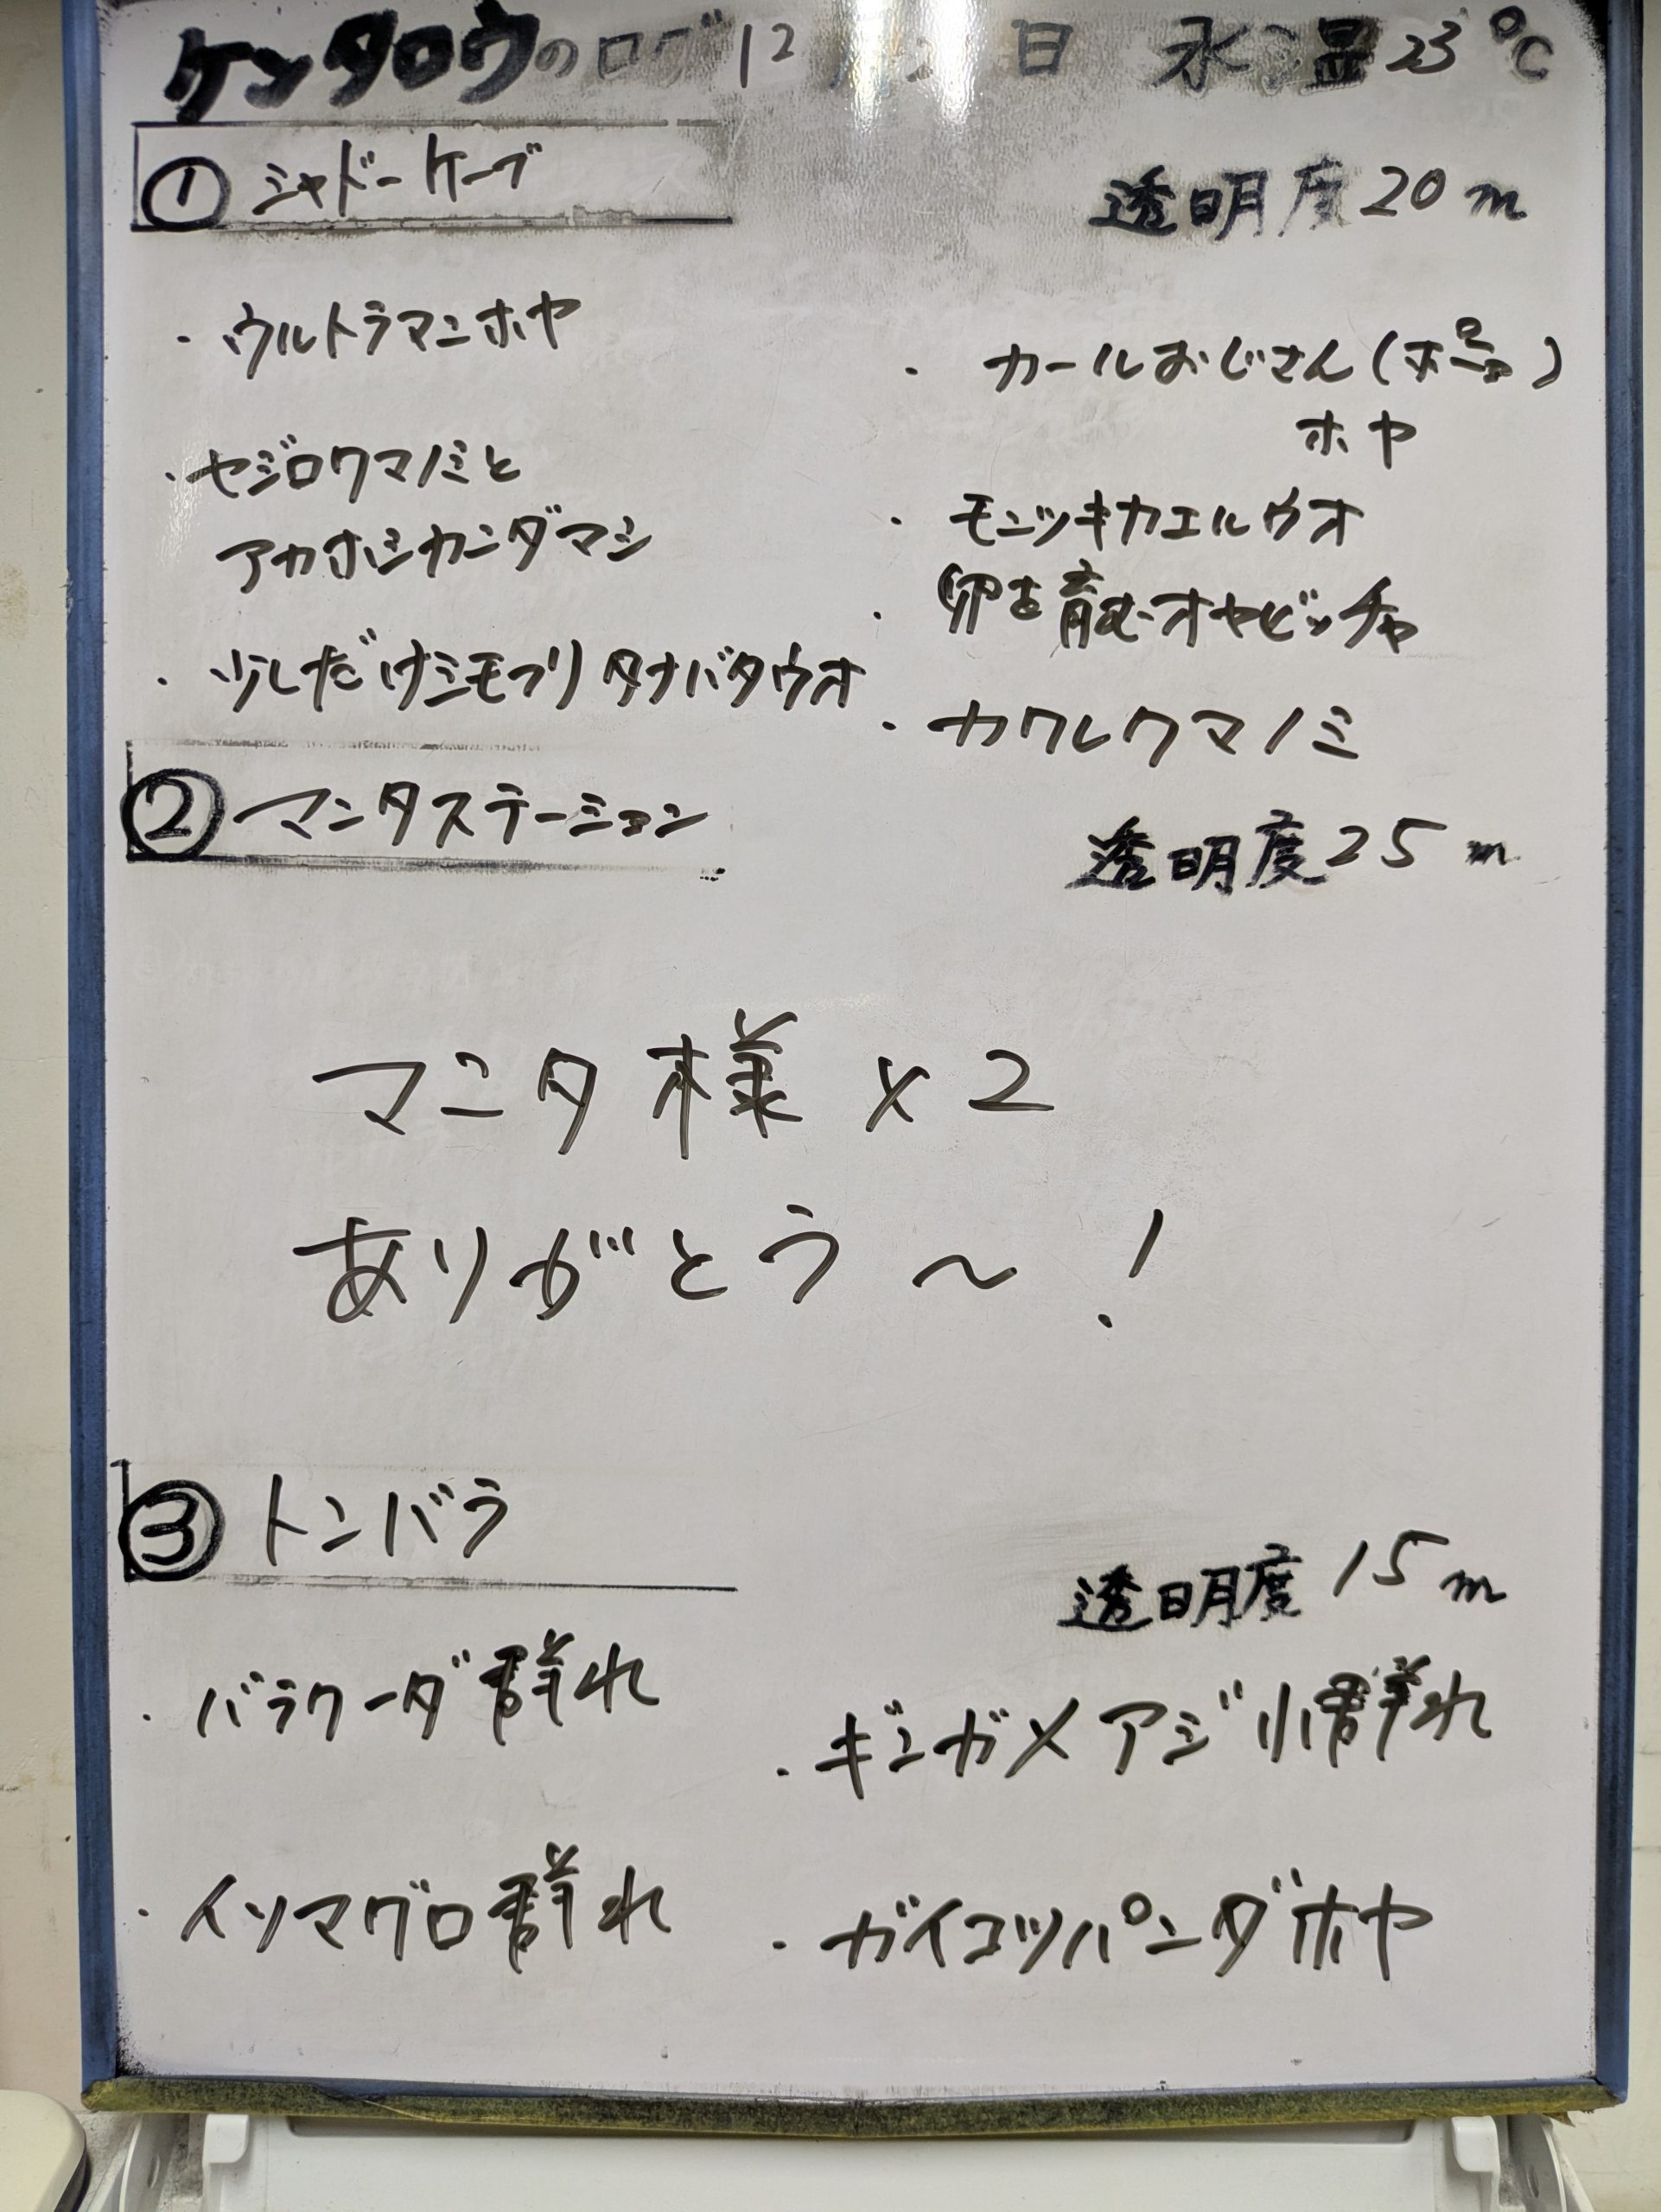 ケンタロウのログ 12月 日 水温23℃
① シャドーケーブ
透明度20m
・ウルトラマンホヤ
・セジロクマノミと
アカホシカニダマシ
・少しだけシモフリタナバタウオ
・カールおじさん( )
ホヤ
・モンツキカエルウオ
・卵を育むオヤビッチャ
・カクレクマノミ
② マンタステーション
透明度25m
マンタ様×2
ありがとう〜!
③ トンバラ
透明度15m
・バラクーダ群れ
・ギンガメアジ小群れ
・イソマグロ群れ
・ガイコツパンダホヤ